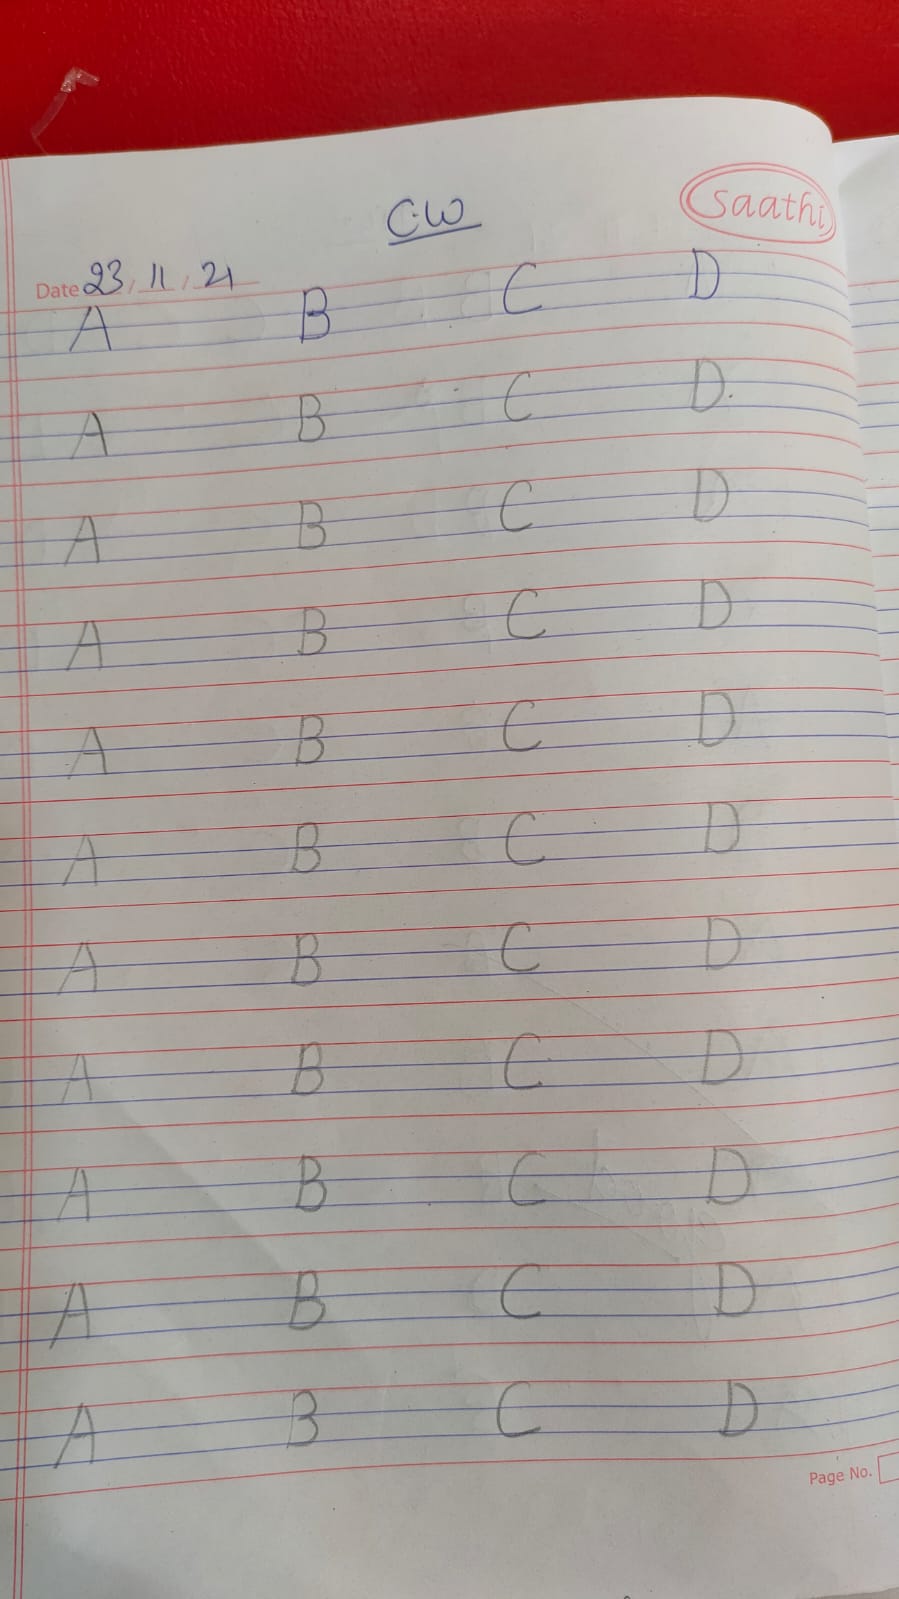 C.W
saathi
Date 23, 11, 21
A B C D
A B C D.
A B C D
A B C D
A B C D
A B C D
A B C D
A B C D
A B C D
A B C D
A B C D
Page No.